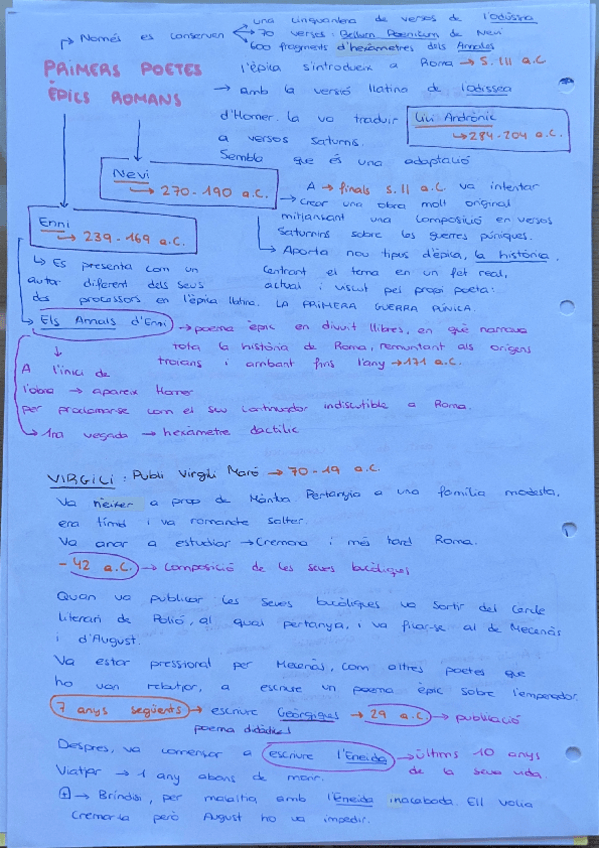 una cinquantena de versos de l'Odissea
→ Només es conserven
70 versos: Bellum Poenicum de Nevi
600 fragments d'hexàmetres dels Annales
PRIMERS POETES
ÈPICS ROMANS
l'èpica s'introdueix a Roma → S. III a.C
→ amb la versió llatina de l'odissea
d'Homer. la va traduir
a versos saturnis.
Sembla que és una adaptació
Livi Andrònic
→ 284-204 a.C.
Nevi
→ 270-190 a.C.
A → finals S. II a.C. va intentar
→ Crear una obra molt original
mitjansant una composició en versos
Saturnins sobre les guerres púniques.
→ Aporta nou tipus d'èpica, la històrica.
Centrant el tema en un fet real,
actual i viscut pel propi poeta:
LA PRIMERA GUERRA PÚNICA.
Enni
→ 239-169 a.C.
↳ Es presenta com un
autor diferent dels seus
dos processors en l'èpica llatina.
→ Els Annals d'Enni → poema èpic en divuit llibres, en què narrava
tota la història de Roma, remuntant als orígens
troians i arribant fins l'any → 171 a.C.
↓
A l'inici de
l'obra → apareix Homer
per proclamar-se com el seu continuador indiscutible a Roma.
→ 1ra vegada → hexàmetre dactílic
VIRGILI: Publi Virgili Maró → 70-19 a.C.
Va néixer a prop de Màntua Pertanyia a una família modesta,
era tímid i va romandre solter.
Va anar a estudiar → Cremona i més tard Roma.
- 42 a.C. → Composició de les seves bucòliques
Quan va publicar les seves bucòliques va sortir del Cercle
literari de Polió, al qual pertanyia, i va ficar-se al de Mecenàs
i d'August.
Va estar pressionat per Mecenàs, com altres poetes que
ho van rebutjar, a escriure un poema èpic sobre l'emperador.
7 anys següents → escriure Geòrgiques → 29 a.C → publicació
poema didàctic
Despres, va començar a escriure l'Eneida → últims 10 anys
de la seva vida.
Viatjar → 1 any abans de morir.
+ → Brindisi, per malaltia, amb l'Eneida inacabada. Ell volia
Cremar-la però August ho va impedir.